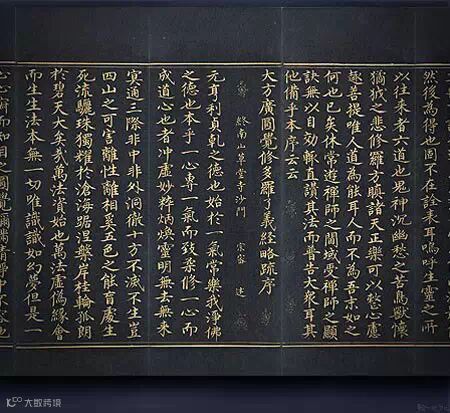 然後為得也固不在詮來耳嗚呼生靈之所
以往來者六道也鬼神沉幽愁之苦鳥獸懷
獝狘之悲修羅方瞋諸天正樂可以整心慮
趣菩提唯人道為能耳人而不為吾末如之
何也已矣休常遊禪師之閫域受禪師之顯
訣無以自効輒直讚其法而普告大衆耳其
他備乎本序云云
大方廣圓覺修多羅了義經略疏序
終南山草堂寺沙門 宗密 述
元亨利貞乾之德也始於一氣常樂我淨佛
之德也本乎一心專一氣而致柔修一心而
成道心也者沖虛妙粹炳煥靈明無去無來
冥通三際非中非外洞徹十方不滅不生豈
四山之可害離性離相奚五色之能盲處生
死流驪珠獨耀於滄海踞涅槃岸桂輪孤朗
於碧天大矣哉萬法資始也萬法虛偽緣會
而生生法本無一切唯識識如幻夢但是一
心心寂而知目之圓覺彌滿清淨中不容他
大数跨境